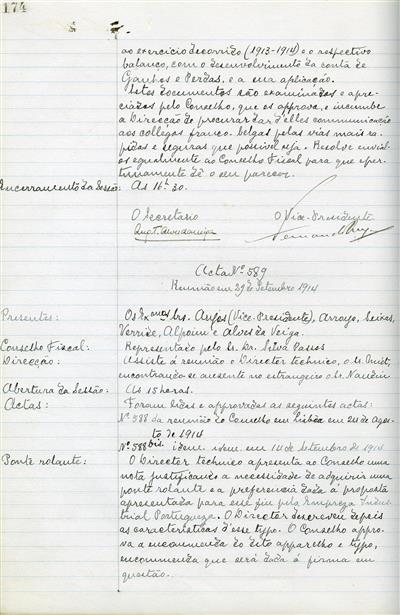 174
ao exercicio decorrido (1913-1914) e o respectivo
balanço, com o desenvolvimento da conta de
Ganhos e Perdas, e a sua aplicação.
Estes documentos são examinados e apre-
ciados pelo Conselho, que os approva, e incumbe
a Direcção de procurar dar d'elles communicação
aos collegas franco-belgas pelas vias mais ra-
pidas e seguras que possivel seja. Resolve envial-
os egualmente ao Conselho Fiscal para que oper-
tunamente dê o seu parecer.
Encerramento da Sessão: As 16h 30.
O Secretario O Vice-Presidente
Acta Nº 589
Reunião em 29 de Setembro 1914
Presentes: Os Exmos Srs. Anjos (Vice-Presidente), Arroyo, Seixas,
Verride, Alpoim e Alves da Veiga.
Conselho Fiscal: Representado pelo Sr. Dr. Silva Passos
Direcção: Assiste á reunião o Director technico, o Mr.
encontrando-se ausente no estrangeiro o Mr.
Abertura da Sessão: As 15 horas.
Actas: Foram lidas e approvadas as seguintes actas:
Nº 588 da reunião do Conselho em Lisboa em 24 de Agos-
to de 1914
Nº 588 bis. idem. idem. em 14 de Setembro de 1914
Ponte rolante: O Director technico apresenta ao Conselho uma
nota justificando a necessidade de adquirir uma
ponte rolante e a preferencia dada á proposta
apresentada para esse fim pela Empreza Indus-
trial Portugueza. O Director descreveu depois
as caracteristicas d'esse typo. O Conselho appro-
va a encommenda do dito apparelho e typo,
encommenda que será dada á firma em
questão.